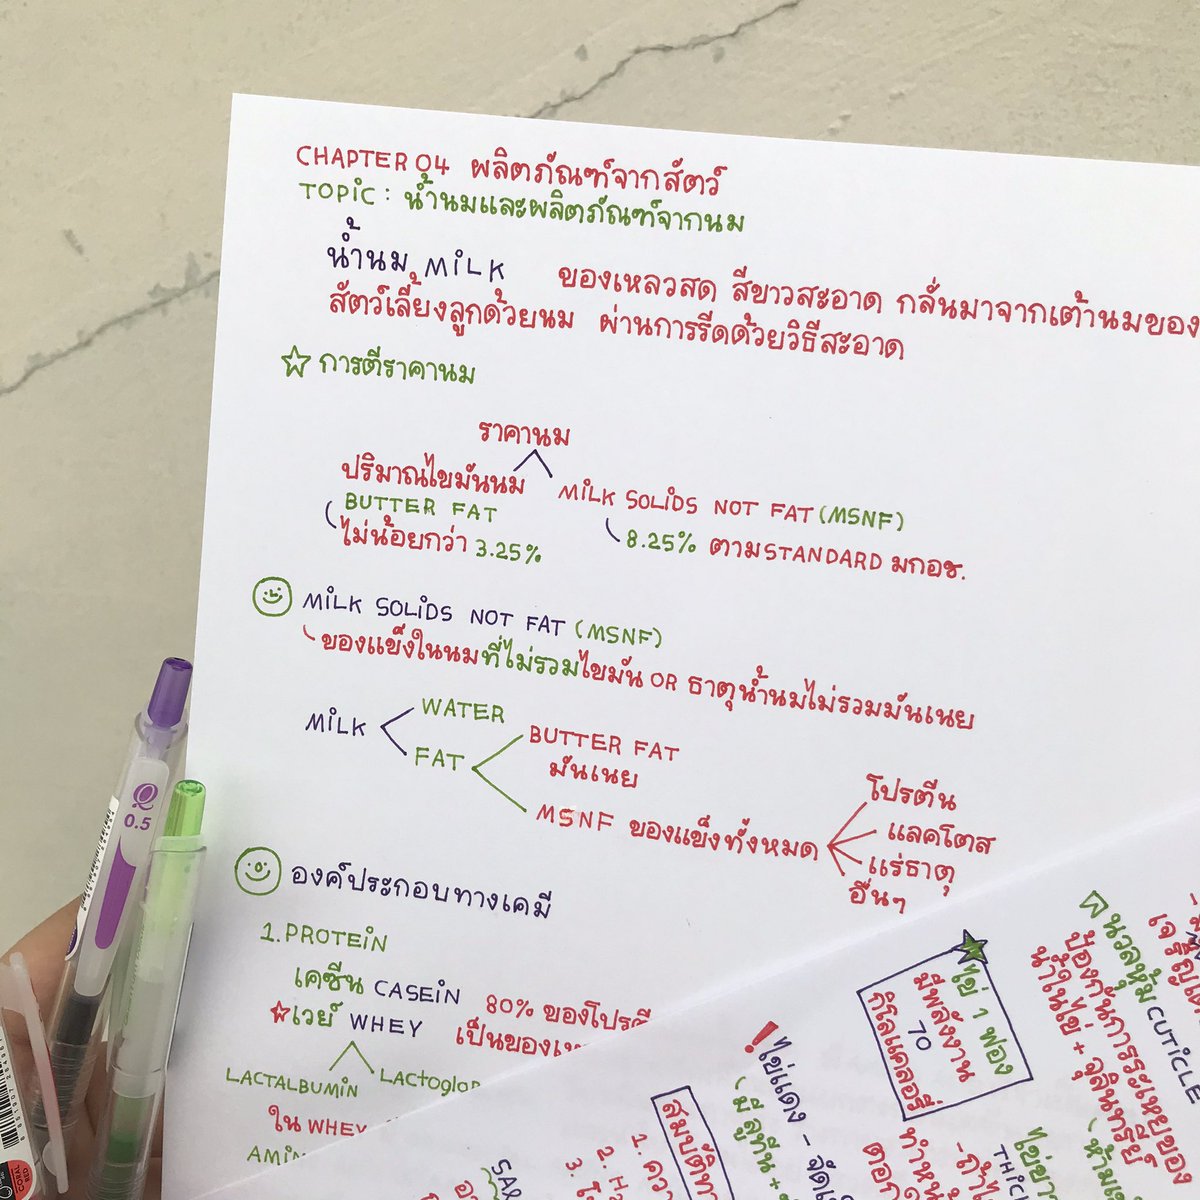 CHAPTER 04 ผลิตภัณฑ์จากสัตว์
TOPIC : น้ำนมและผลิตภัณฑ์จากนม
น้ำนม MILK ของเหลวสด สีขาวสะอาด กลั่นมาจากเต้านมของ
สัตว์เลี้ยงลูกด้วยนม ผ่านการรีดด้วยวิธีสะอาด
การตีราคานม
ราคานม
ปริมาณไขมันนม
BUTTER FAT
ไม่น้อยกว่า 3.25%
MILK SOLIDS NOT FAT (MSNF)
8.25% ตาม STANDARD มกอช.
MILK SOLIDS NOT FAT (MSNF)
ของแข็งในนมที่ไม่รวมไขมัน OR ธาตุน้ำนมไม่รวมมันเนย
MILK
WATER
FAT
BUTTER FAT
มันเนย
MSNF ของแข็งทั้งหมด
โปรตีน
แลคโตส
แร่ธาตุ
อื่นๆ
องค์ประกอบทางเคมี
1. PROTEIN
เคซีน CASEIN 80% ของโปรตี
เวย์ WHEY เป็นของเห
LACTALBUMIN
LACTOGLO
ใน WHEY
AMIN
ไข่ 1 ฟอง
มีพลังงาน
70
กิโลแคลอรี่
นวลหุ้ม CUTICLE
ป้องกันการระเหยของ
น้ำในไข่ + จุลินทรีย์
ไข่แดง - จัดเ
มีลูทีน +
สมบัติทา
1. ควา
2. H
3. โ
ไข่ขา
THIC
ห้าม
0.5